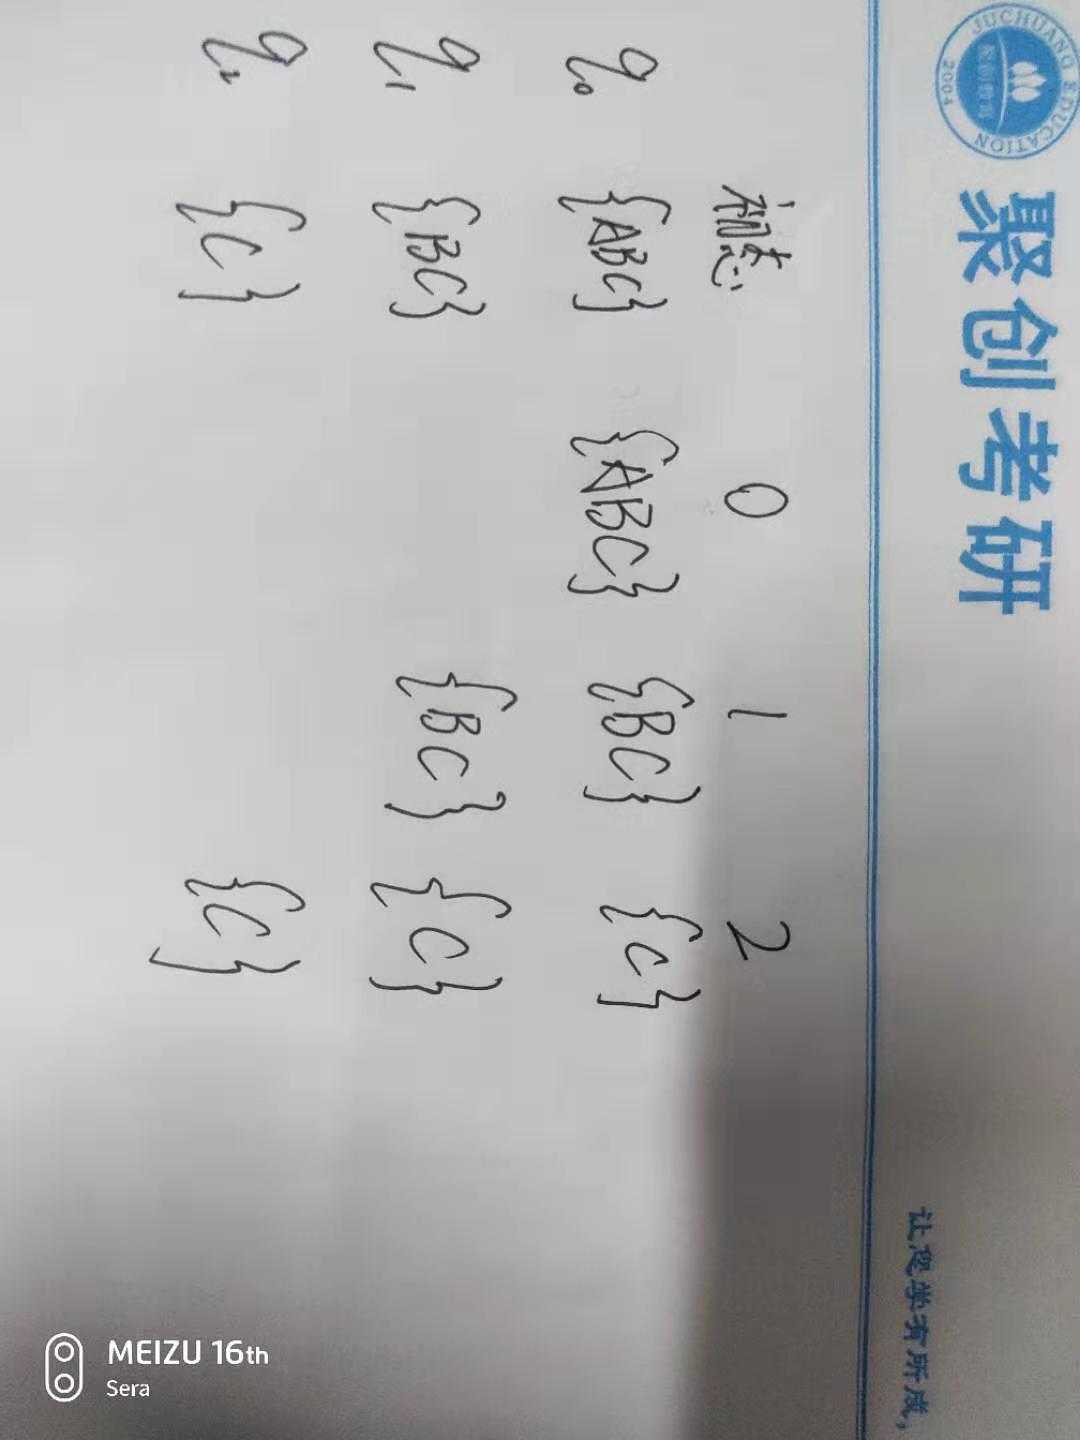 JUCHUANG EDUCATION
聚创教育
2004
聚创考研
让您学有所成,
初态 0 1 2
q₀ {ABC} {ABC} {BC} {C}
q₁ {BC} {BC} {C}
q₂ {C} {C}
MEIZU 16th
Sera